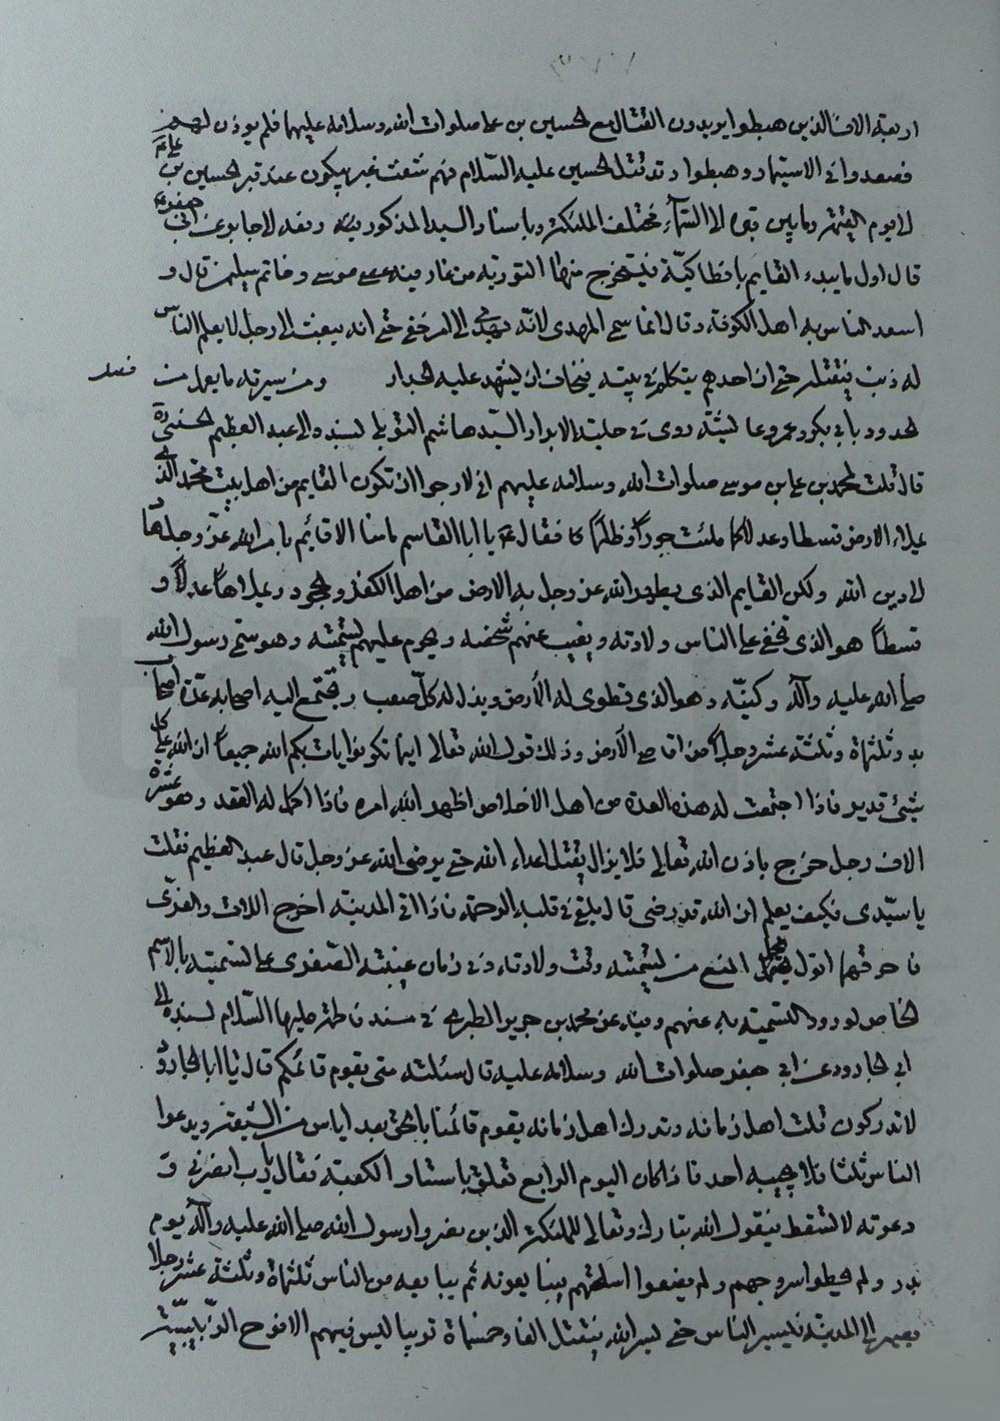 اربعة الاف الذين هبطوا يريدون القتال مع الحسين بن علي صلوات الله وسلامه عليهما فلم يوذن لهم
فصعدوا في الاستيمار وهبطوا وقد قتل الحسين عليه السلام فهم شعث غبر يبكون عند قبر الحسين بن علي ع
لا يوم القيمة وما بين قبره الا السماء مختلف الملئكة وباسناد السيد المذكور يرفعه لا جابر عن ابي جعفر ع
قال اول ما يبدء القايم بانطاكية فيستخرج منها التورية من غار فيه عصى موسى وخاتم سليمن قال و
اسعد الناس به اهل الكوفة وقال انما سمي المهدي لانه يهدي الى امر خفي حتى انه يبعث الى رجل لا يعلم الناس
له ذنب فيقتله حتى ان احدهم يتكلم في بيته فيخاف ان يشهد عليه الجدار ومن سيرته ما يعمل من
فصل
الحدود بابي بكر وعمر وعايشة روى في حلية الابرار السيد هاشم التوبلي بسنده الى عبد العظيم الحسني
قال قلت لمحمد بن علي بن موسى صلوات الله وسلامه عليهم اني لارجو ان تكون القايم من اهل بيت محمد الذي
يملاء الارض قسطا وعدلا كما ملئت جورا وظلما فقال ع يا ابا القاسم ما منا الا قائم بامر الله عز وجل وهاد
لا دين الله ولكن القايم الذي يطهر الله عز وجل به الارض من اهل الكفر والجحود ويملاها عدلا و
قسطا هو الذي تخفى على الناس ولادته ويغيب عنهم شخصه ويحرم عليهم تسميته وهو سمي رسول الله
صلى الله عليه وآله وكنيه وهو الذي تطوى له الارض ويذل له كل صعب ويجتمع اليه اصحابه عدة اصحاب
بدر ثلثماة وثلثة عشر رجلا من اقاصي الارض وذلك قول الله تعالى اينما تكونوا يات بكم الله جميعا ان الله على كل
شيئ قدير فاذا اجتمعت له هذه العدة من اهل الاخلاص اظهر الله امره فاذا اكمل له العقد وهو عشرة
الاف رجل خرج باذن الله تعالى فلا يزال يقتل اعداء الله حتى يرضى الله عز وجل قال عبد العظيم فقلت
يا سيدى فكيف يعلم ان الله قد رضى قال يلقى في قلبه الرحمة فاذا اتى المدينة اخرج اللات والعزى
فاحرقهما اقول يحمل المنع من تسميته وقت ولادته وفي زمان غيبته الصغرى على تسميته بالاسم
الخاص لورود التسميه به عنهم وفيه عن محمد بن جرير الطبري في مسند فاطمة عليها السلام بسنده الى
ابي الجارود عن ابي جعفر صلوات الله وسلامه عليه قال سئلته متى يقوم قائمكم قال يا ابا الجارود
لا تدركون قلت اهل زمانه وتدرك اهل زمانه يقوم قائمنا بالحق بعد اياس من الشيعة ويدعوا
الناس ثلثا فلا يجيبه احد فاذا كان اليوم الرابع تعلق باستار الكعبة فقال يا رب انصرني و
دعوته لا تسقط فيقول الله تبارك وتعالى للملئكة الذين نصروا رسول الله صلى الله عليه وآله يوم
بدر ولم يحطوا سروجهم ولم يضعوا اسلحتهم فيبايعونه ثم يبايعه من الناس ثلثماة وثلثة عشر رجلا
يصير الى المدينة فيسير الناس حتى يسير الله فيقتل الفا وخمسماة قريبا ليس فيهم الا فرخ